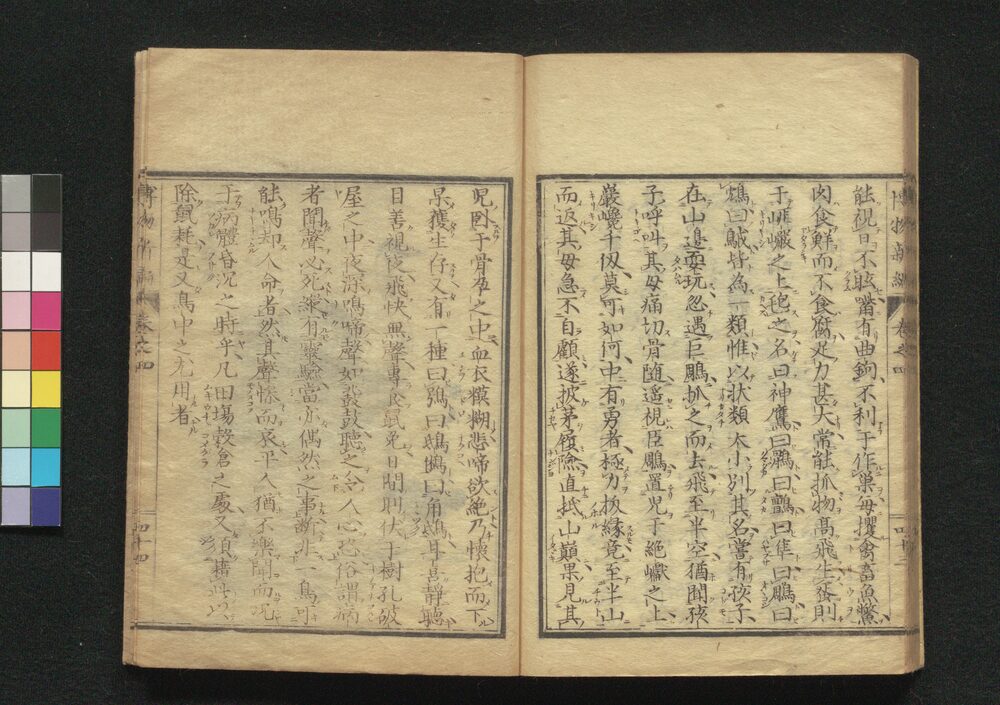 博物新編 卷之四
能視日不眩嘴有曲鉤不利于作巢每攫禽畜魚鱉
肉食鮮而不食腐足力甚大常能抓物高飛生蛋則
于巉巖之上 之名曰神鷹曰鸇曰鸇曰隼曰鵰曰
鷂曰 皆為一類惟以狀類大小別其名嘗有孩子
在山邊耍玩忽遇巨鵰抓之而去飛至半空猶聞孩
子呼叫其母痛切骨隨遙視巨鵰置兒于絕巘之上
巖巉千仭莫可如何中有勇者極力扳緣竟至半山
而返其母急不自顧遂披茅履險直抵山巔果見其
兒困于骨卵之中血衣模糊悲啼欲絕乃懷抱而下
果獲生仔又有一種曰鴞曰鴟鵂曰角鴟耳喜靜聽
目善視夜飛快無聲專食鼠兔日間則伏于樹孔破
屋之中夜深鳴啼聲如 鼓聽之令人心恐俗謂病
者聞聲必死縱有靈驗當亦偶然之事斷非一鳥乎
能鳴却人命者然其聲慘而哀平人猶不樂聞而況
于病體昏沉之時乎凡田塲穀倉之處又須藉此以
除鼠耗是又鳥中之尤用者
博物新編 卷之四 四十四